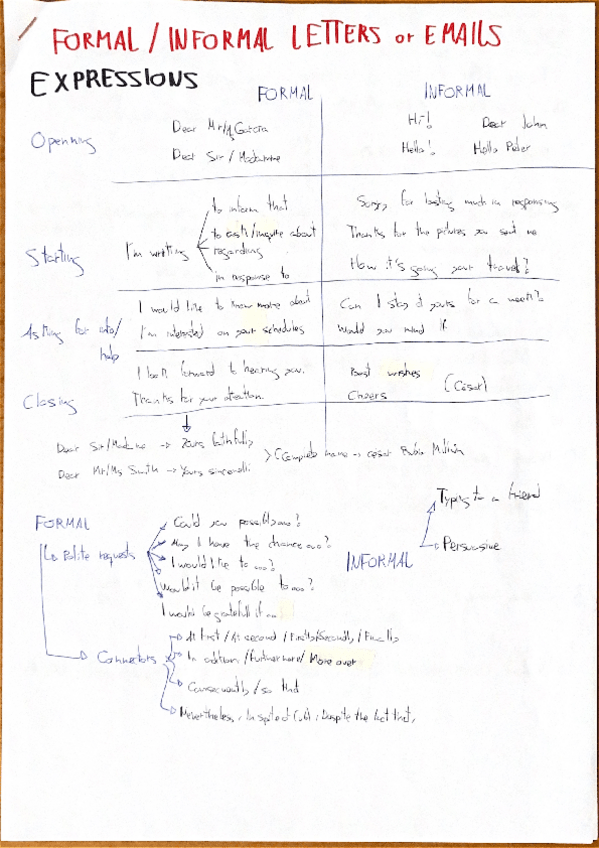 FORMAL / INFORMAL LETTERS or EMAILS
EXPRESSIONS
FORMAL INFORMAL
Openning
Dear Mr/ García
Dear Sir / Madamme
Hi! Dear John
Hello! Hello Peter
Starting
I'm writing
to inform that
to ask/inquire about
regarding
in response to
Sorry, for lasting much in responsing
Thanks for the pictures you sent me
How it's going your travel?
Asking for info/
help
I would like to know more about
I'm interested on your schedules
Can I stay at yours for a week?
Would you mind if
Closing
I look forward to hearing you.
Thanks for your attention.
Best wishes
Cheers
(César)
Dear Sir/Madame → Yours faithfully
Dear Mr/Ms Smith → Yours sincerelli
(Complete name → César Rubio
FORMAL
Polite requests
Could you possibly...?
May I have the chance ...?
I would like to ...?
Would it be possible to...?
I would be gratefull if...
INFORMAL
Typing to a friend
Persuasive
Connectors
At first / At second / Firstly/Secondly / Finally
In addition / Furthermore/ More over
Consecuently / so that
Nevertheless, In spite of, Despite the fact that,